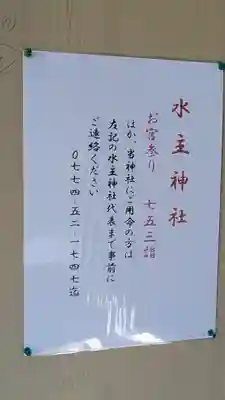 水主神社
お宮参り 七五三詣
ほか、当神社にご用命の方は
左記の水主神社代表まで事前に
ご連絡ください
0774-52-1747迄